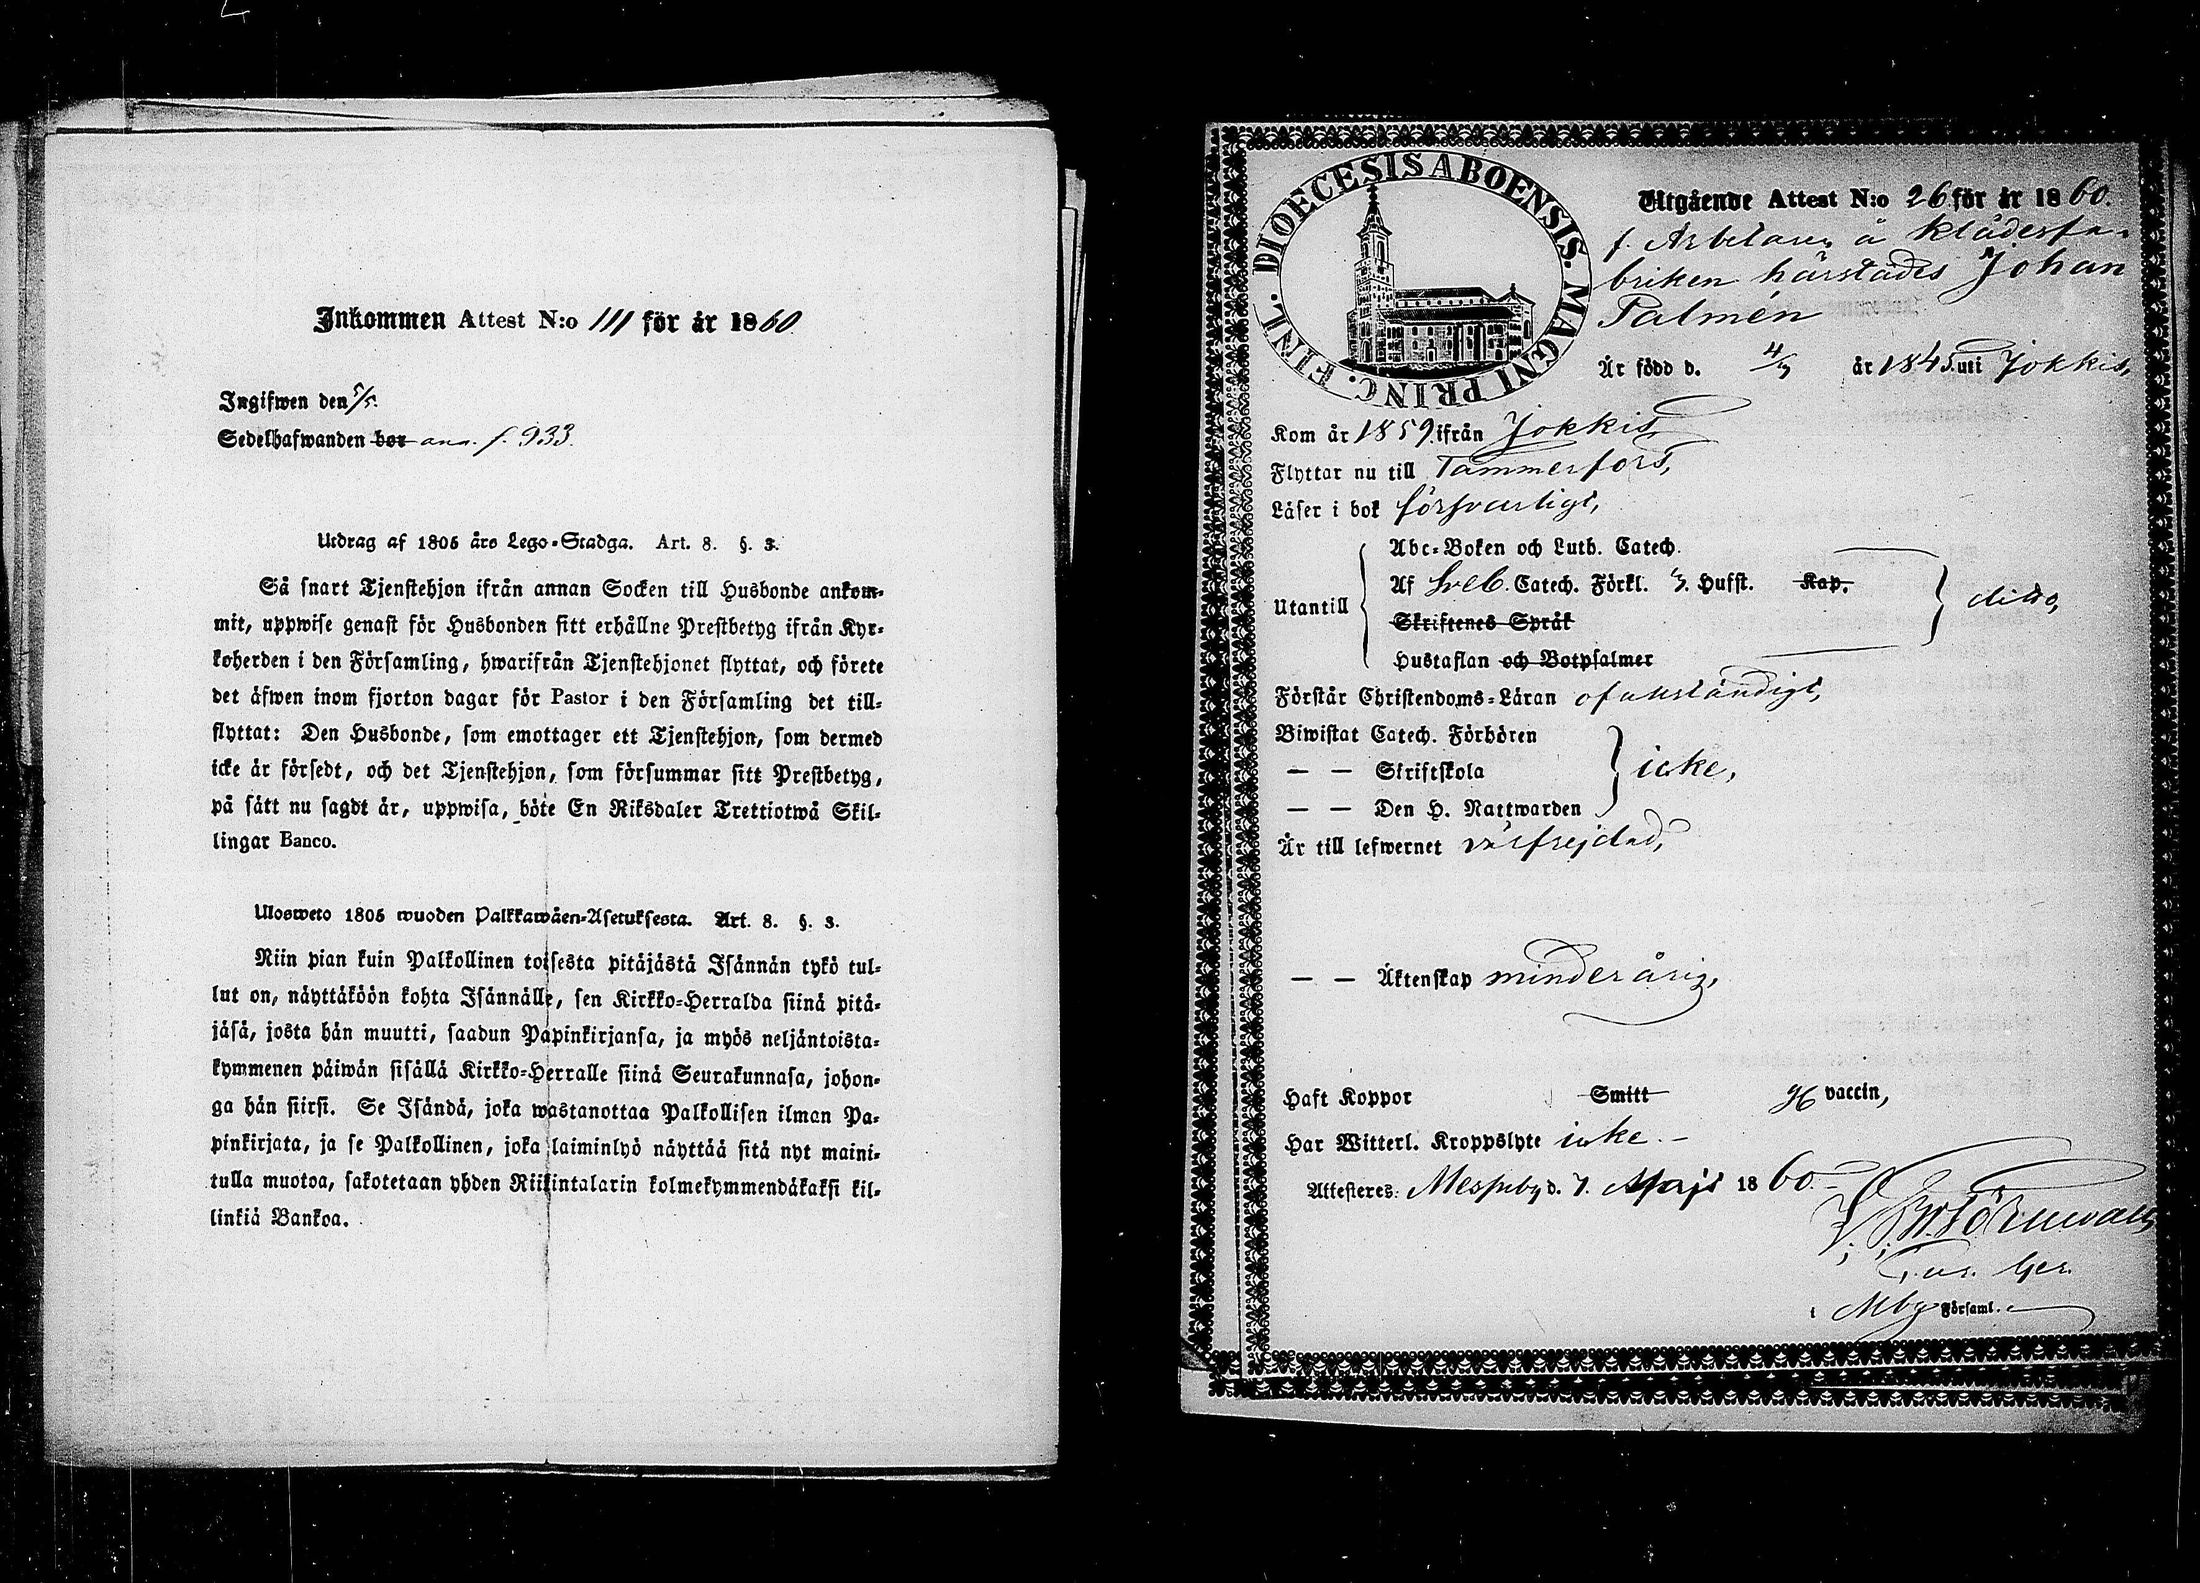 Inkommen Attest N:o 111 för år 1860
Ingifwen den 5/5.
Sedelhafwanden bor ann. f. 933.
Utdrag af 1805 års Lego-Stadga. Art. 8. §. 3.
Så snart Tjenstehjon ifrån annan Socken till Husbonde ankom-
mit, uppwise genast för Husbonden sitt erhållne Prestbetyg ifrån Kyr-
koherden i den Församling, hwarifrån Tjenstehjonet flyttat, och förete
det äfwen inom fjorton dagar för Pastor i den Församling det till-
flyttat: Den Husbonde, som emottager ett Tjenstehjon, som dermed
icke är försedt, och det Tjenstehjon, som försummar sitt Prestbetyg,
på sätt nu sagdt är, uppwisa, böte En Riksdaler Trettiotwå Skil-
lingar Banco.
Ulosweto 1805 wuoden Palkkawäen-Asetuksesta. Art. 8. §. 3.
Niin pian kuin Palkollinen toisesta pitäjästä Isännän tykö tul-
lut on, näyttäköön kohta Isännälle, sen Kirkko-Herralda siinä pitä-
jäsä, josta hän muutti, saadun Papinkirjansa, ja myös neljäntoista-
kymmenen päiwän sisällä Kirkko-Herralle siinä Seurakunnasa, johon-
ga hän siirsi. Se Isändä, joka wastanottaa Palkollisen ilman Pa-
pinkirjata, ja se Palkollinen, joka laiminlyö näyttää sitä nyt maini-
tulla muotoa, sakotetaan yhden Riikintalarin kolmekymmendäkaksi kil-
linkiä Bankoa.
DIOECESIS ABOENSIS. MAGNI PRINC. FINL.
Utgående Attest N:o 26 för år 1860.
f. Arbetaren å klädesfa-
briken härstädes Johan
Palmén
Är född d. 4/3 år 1845 uti Jokkis,
Kom år 1859 ifrån Jokkis,
Flyttar nu till Tammerfors,
Läser i bok försvarligt,
Abc-Boken och Luth. Catech.
Af Sveb. Catech. Förkl. 3. Hufst. Kap.
Utantill
ditto,
Skriftenes Språk
Hustaflan och Botpsalmer
Förstår Christendoms-Läran ofullständigt,
Biwistat Catech. Förhören
— — Skriftskola icke,
— — Den H. Nattwarden
Är till lefwernet välfrejdad,
— — Äktenskap minderårig,
Haft Koppor Smitt vaccin,
Har Witterl. Kroppslyte icke.—
Attesteras: Messuby d. 7. Maji 1860.—
Törnwall
i Mby Församl.